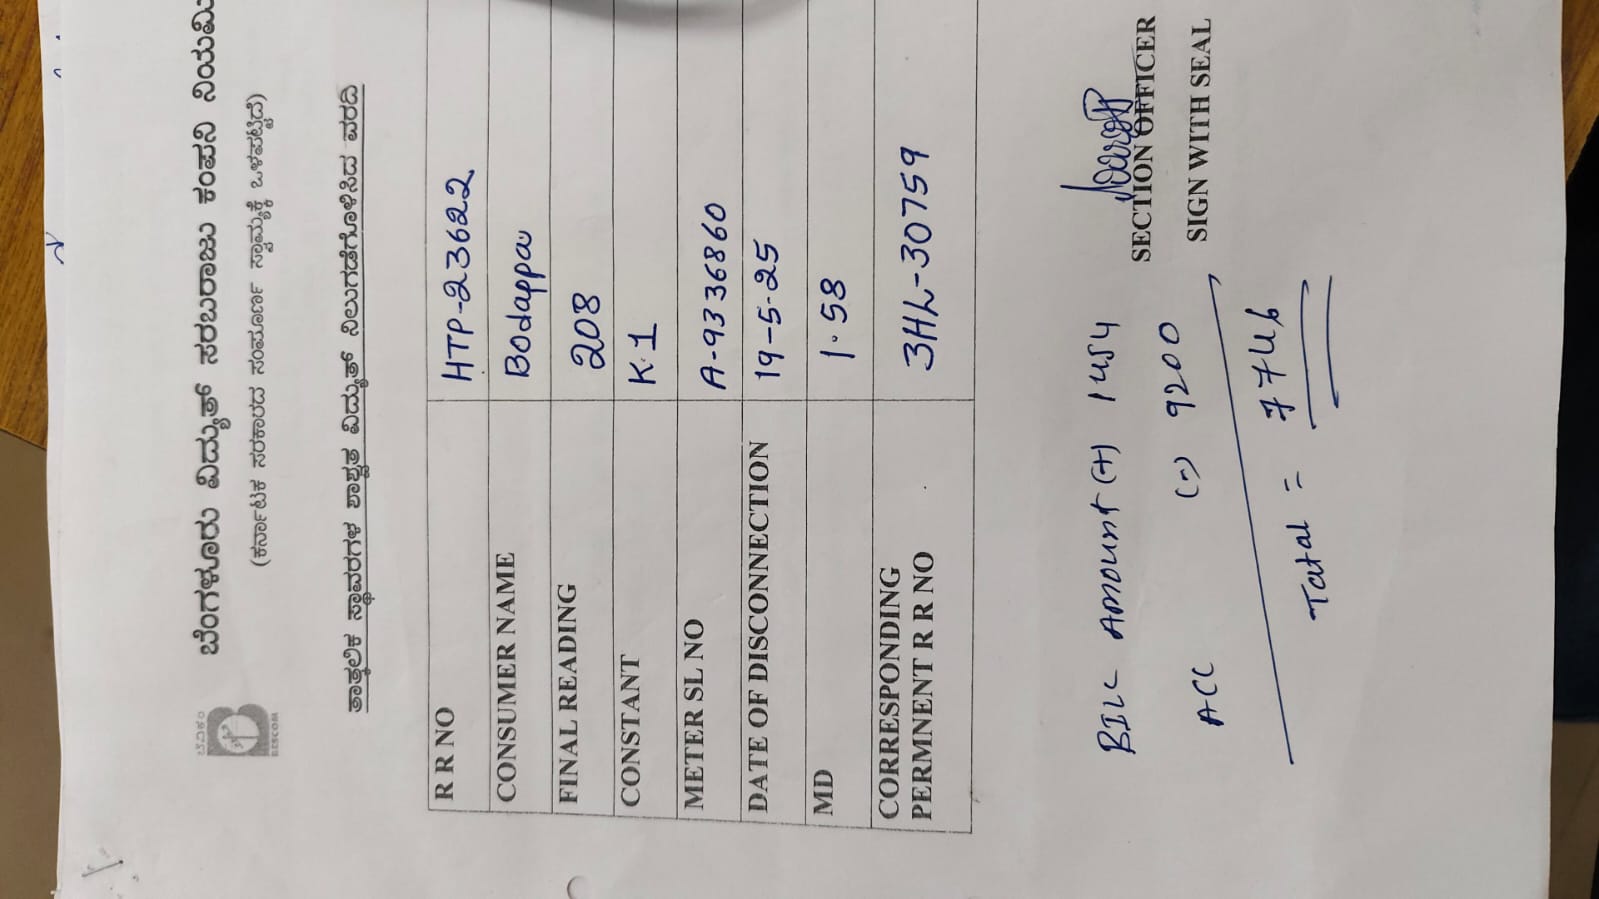 ಬೆವಿಕಂ
BESCOM
ಬೆಂಗಳೂರು ವಿದ್ಯುತ್ ಸರಬರಾಜು ಕಂಪನಿ ನಿಯಮಿ
(ಕರ್ನಾಟಕ ಸರಕಾರದ ಸಂಪೂರ್ಣ ಸ್ವಾಮ್ಯಕ್ಕೆ ಒಳಪಟ್ಟಿದೆ)
ತಾತ್ಕಲಿಕ ಸ್ಥಾವರಗಳ ಶಾಶ್ವತ ವಿದ್ಯುತ್ ನಿಲುಗಡೆಗೊಳಿಸಿದ ವರದಿ
R R NO HTP-23622
CONSUMER NAME Bodappa
FINAL READING 208
CONSTANT K·1
METER SL NO A-9336860
DATE OF DISCONNECTION 19-5-25
MD 1·58
CORRESPONDING PERMNENT R R NO 3HL-30759
BILL Amount (+) 1454
SECTION OFFICER
ACC (-) 9200
SIGN WITH SEAL
Total = 7746